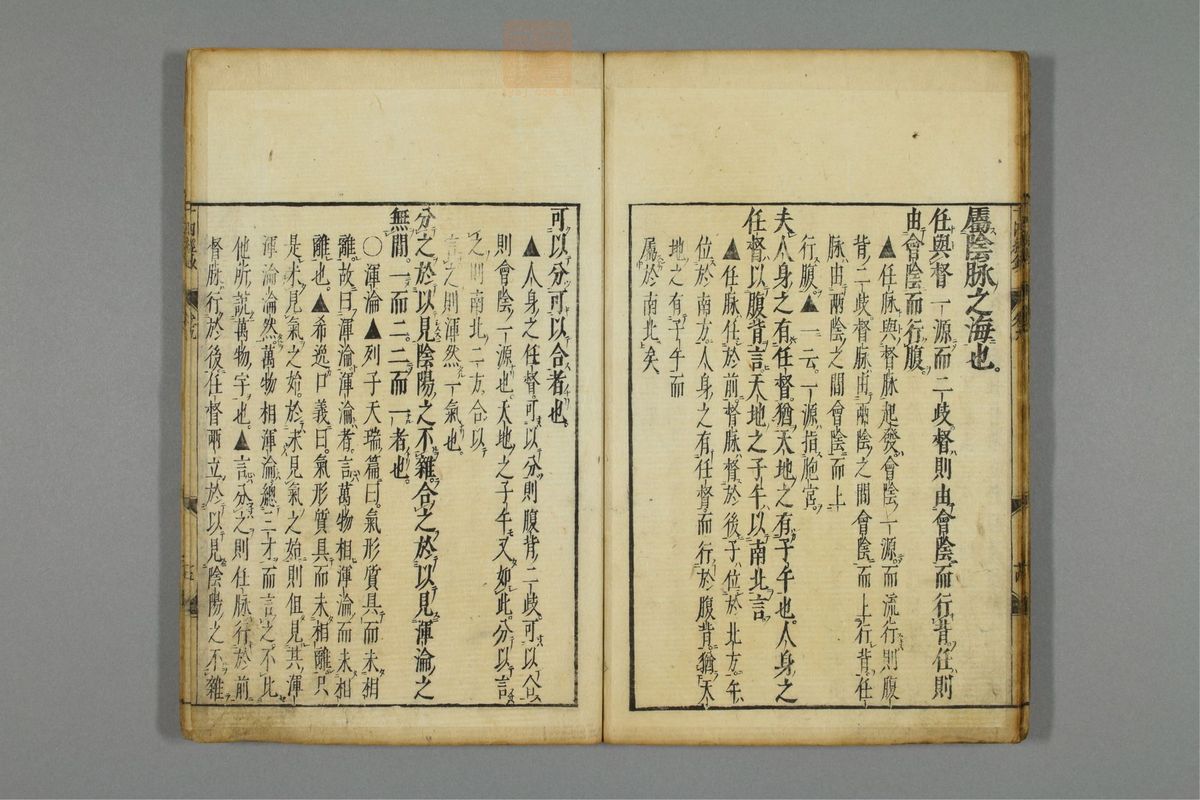 屬陰脉之海也。
任與督一源而二歧督則由會陰而行背任則
由會陰而行腹
▲任脉與督脉起發會陰一源而流行則腹
背二歧督脉由兩陰之間會陰而上行背任
脉由兩陰之間會陰而上
行腹▲一云一源指胞宮
夫人身之有任督猶天地之有子午也人身之
任督以腹背言天地之子午以南北言
▲任脉任於前督脉督於後子位於北方午
位於南方人身之有任督而行於腹背猶天
地之有子午而
屬於南北矣
可以分可以合者也
▲人身之任督可以分則腹背二歧可以合
則會陰一源也天地之子午又如此分以言
之則南北二方合以
言之則渾然一氣也
分之於以見陰陽之不雜合之於以見渾淪之
無間一而二二而一者也
○渾淪▲列子天瑞篇曰氣形質具而未相
離故曰渾淪渾淪者言萬物相渾淪而未相
離也▲希逸口義曰氣形質具而未相離只
是未見氣之始於未見氣之始則但見其渾
渾淪淪然萬物相渾淪總三才而言之不比
他所說萬物字也▲言分之則任脉行於前
督脉行於後任督兩立於以見陰陽之不雜